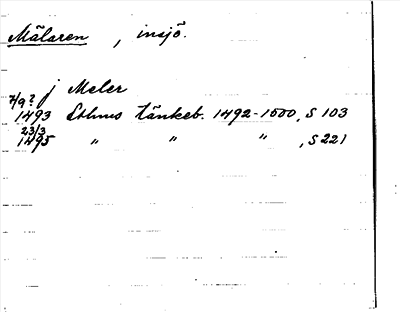 Mälaren, insjö.
j Meler
7/9? 1493 Sthms tänkeb. 1492-1500, S 103
23/3 1495 " " ", S 221